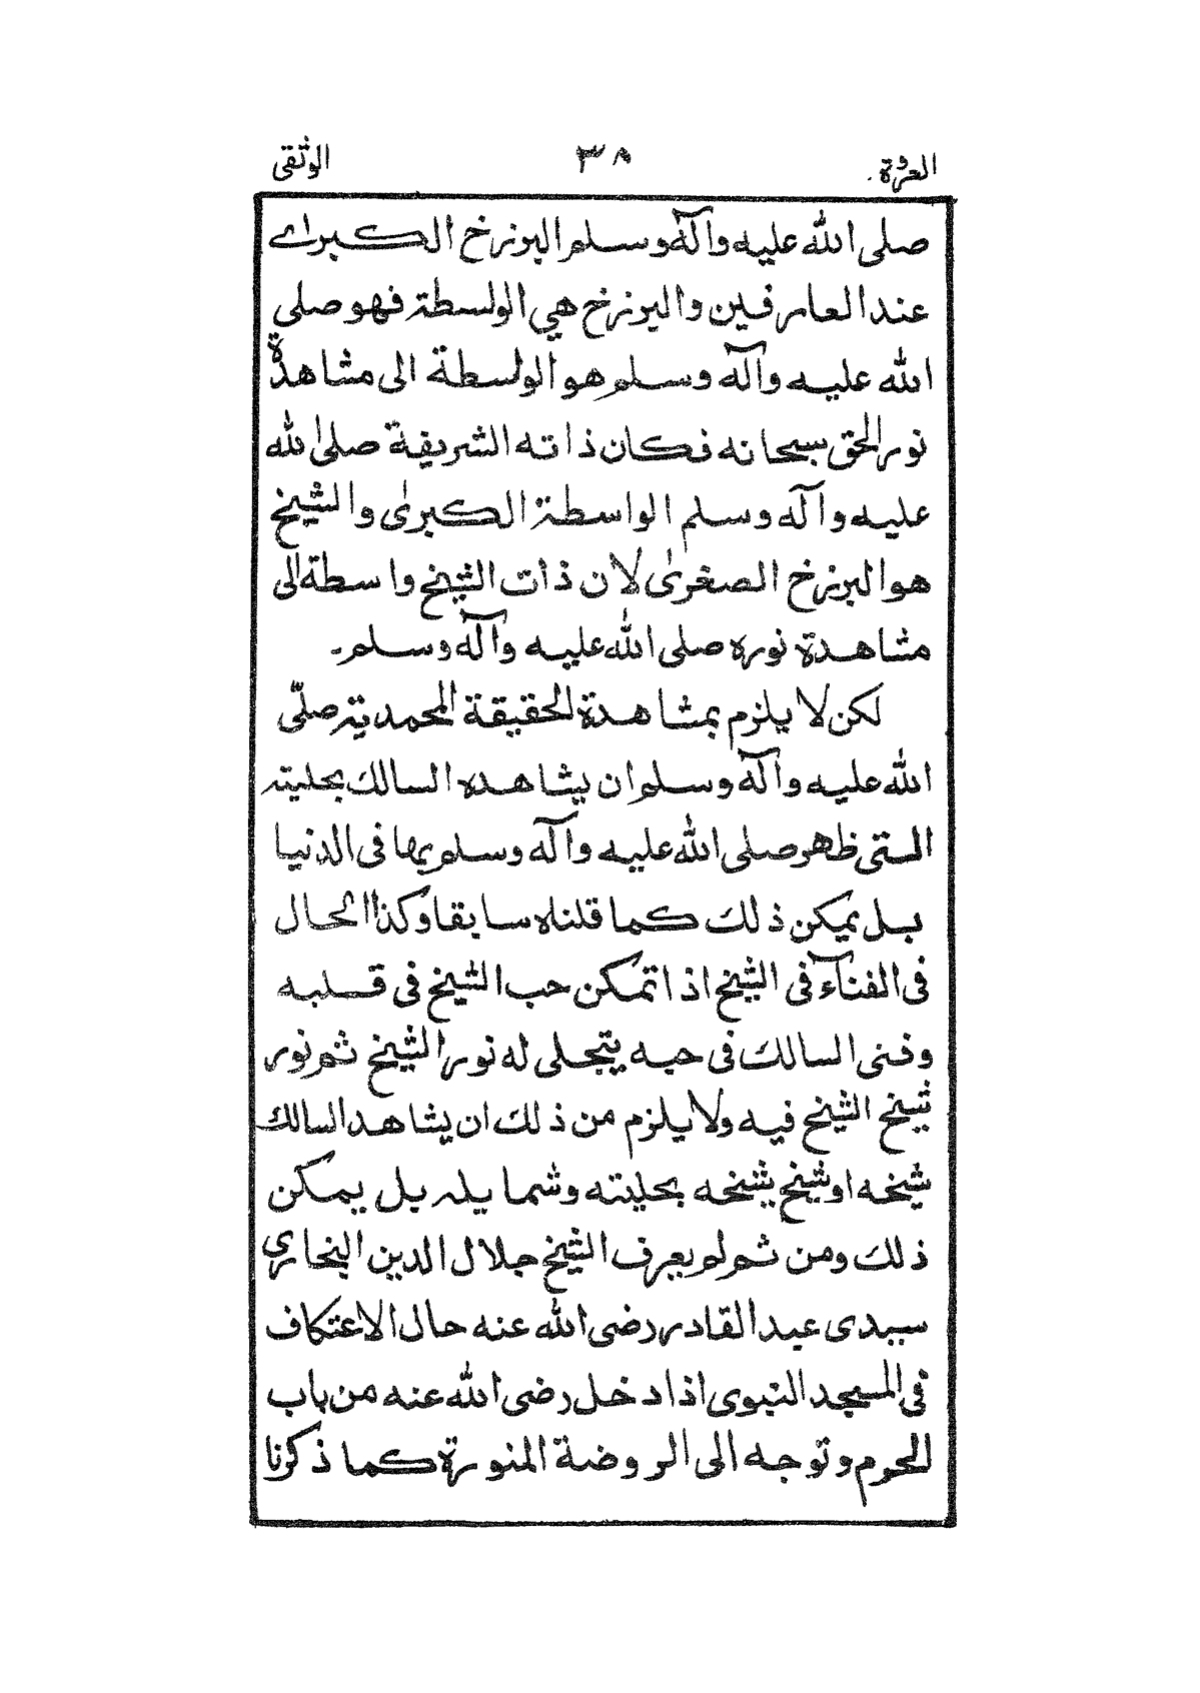 العروة ٣٨ الوثقى
صلى الله عليه وآله وسلم البرزخ الكبرى
عند العارفين والبرزخ هي الواسطة فهو صلى
الله عليه وآله وسلم هو الواسطة الى مشاهدة
نور الحق سبحانه فكان ذاته الشريفة صلى الله
عليه وآله وسلم الواسطة الكبرىٰ والشيخ
هو البرزخ الصغرىٰ لان ذات الشيخ واسطة الى
مشاهدة نوره صلى الله عليه وآله وسلم۔
لكن لا يلزم بمشاهدة الحقيقة المحمدية صلّى
الله عليه وآله وسلم ان يشاهده السالك بحليته
التى ظهر صلى الله عليه وآله وسلم بها فى الدنيا
بل يمكن ذلك كما قلناه سابقا وكذا الحال
فى الفنآء فى الشيخ اذا تمكن حب الشيخ فى قلبه
وفنى السالك فى حبه يتجلى له نور الشيخ ثم نور
شيخ الشيخ فيه ولا يلزم من ذلك ان يشاهد السالك
شيخه او شيخ شيخه بحليته وشمايله بل يمكن
ذلك ومن ثم لو يعرف الشيخ جلال الدين البخاري
سيدى عبد القادر رضى الله عنه حال الاعتكاف
فى المسجد النبوى اذا دخل رضى الله عنه من باب
الحرم وتوجه الى الروضة المنورة كما ذكرنا